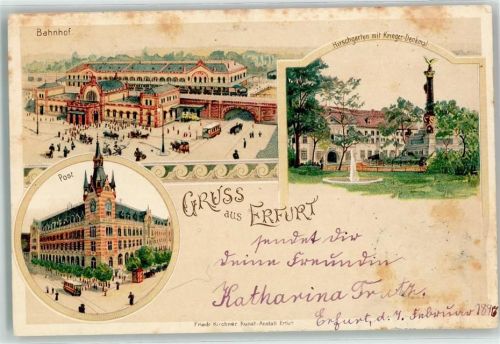 Bahnhof
Hirschgarten mit Krieger-Denkmal
Post
GRUSS
aus ERFURT
sendet dir
deine Freundin
Katharina
Erfurt, d. 7. Februar
Friedr. Kirchner, Kunst-Anstalt Erfurt